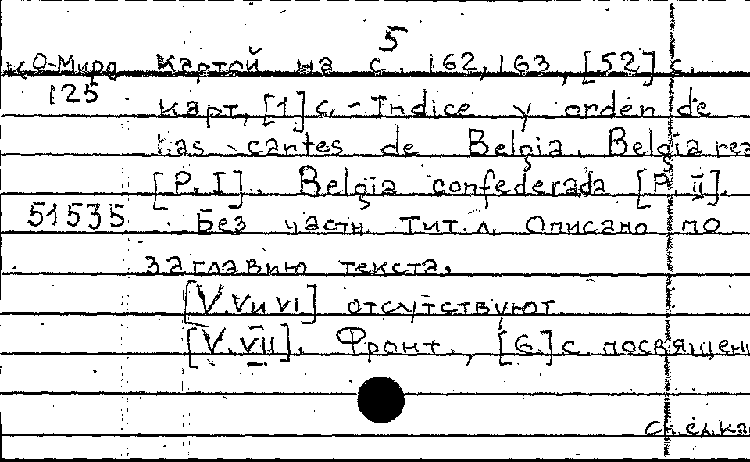 5
к О-Мира картой на с. 162, 163, [52] с.
125 карт, [1] с. - Indice y orden de
las cartes de Belgia. Belgia rea
[P. I]. Belgia confederada [P. II].
51535 Без частн. тит. л. Описано по
заглавию текста.
[V. V и VI] отсутствуют
[V. VII]. Фронт., [6] с. посвящен
см. сл. кар